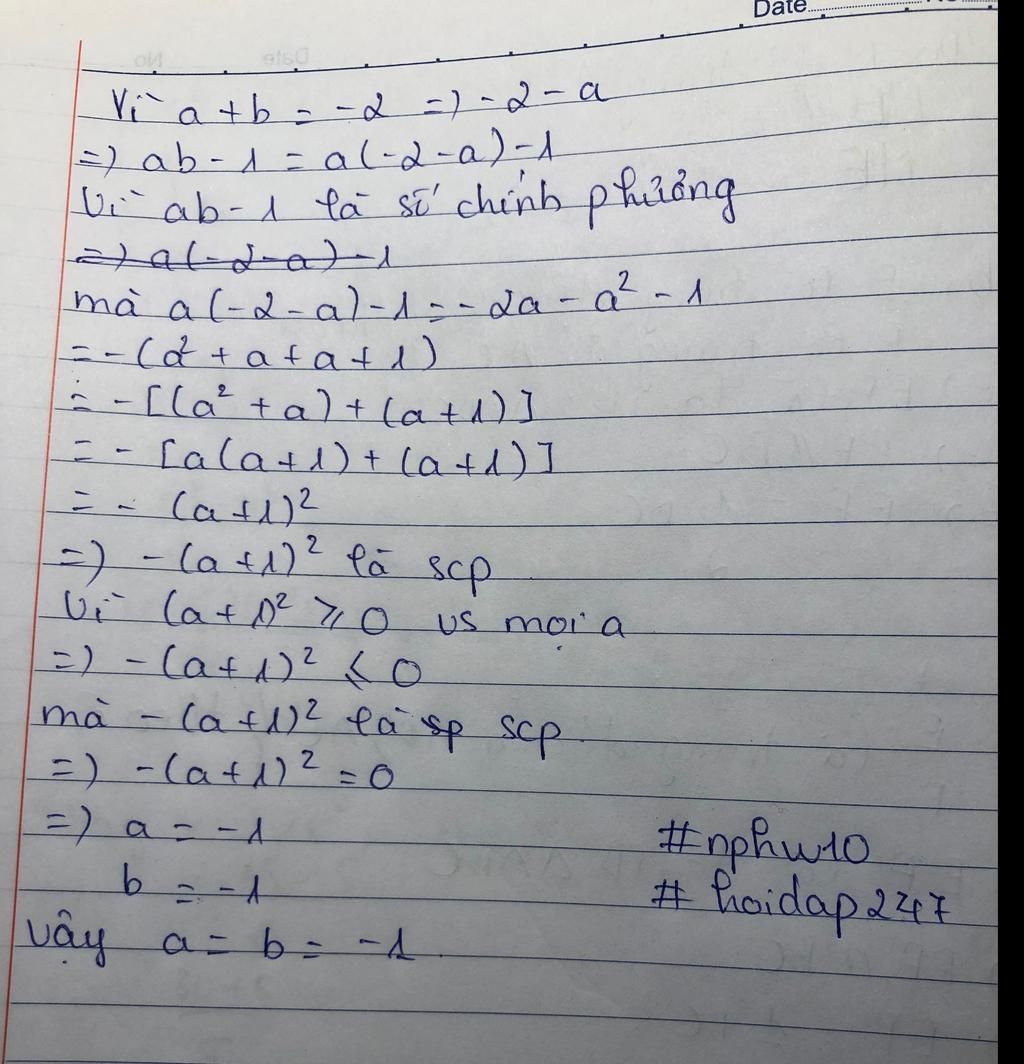 Date
Vì a + b = -2 => -2 - a
=> ab - 1 = a(-2 - a) - 1
Vì ab - 1 là số chính phương
=> a(-2 - a) - 1
mà a(-2 - a) - 1 = -2a - a² - 1
= -(a² + a + a + 1)
= -[(a² + a) + (a + 1)]
= -[a(a + 1) + (a + 1)]
= -(a + 1)²
=> -(a + 1)² là scp
Vì (a + 1)² ⩾ 0 vs mọi a
=> -(a + 1)² ⩽ 0
mà -(a + 1)² là sp scp
=> -(a + 1)² = 0
=> a = -1
#nphw10
b = -1
# hoidap247
Vậy a = b = -1.